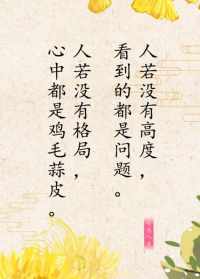 人若没有高度，
看到的都是问题，。
人若没有格局，
心中都是鸡毛蒜皮。